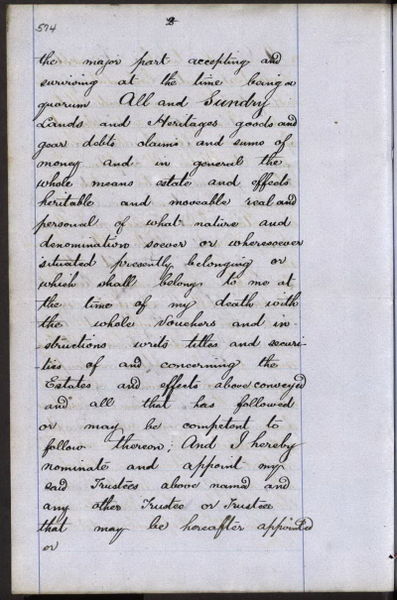 574
2
the major part accepting and
surviving at the time being a
quorum All and Sundry
Lands and Heritages goods and
gear debts claims and sums of
money and in general the
whole means estate and effects
heritable and moveable real and
personal of what nature and
denomination soever or wheresoever
situated presently belonging or
which shall belong to me at
the time of my death with
the whole Vouchers and in-
-structions writs titles and securi-
-ties of and concerning the
Estates and effects above conveyed
and all that has followed
or may be competent to
follow thereon; And I hereby
nominate and appoint my
said Trustees above named and
any other Trustee or Trustees
that may be hereafter appointed
or